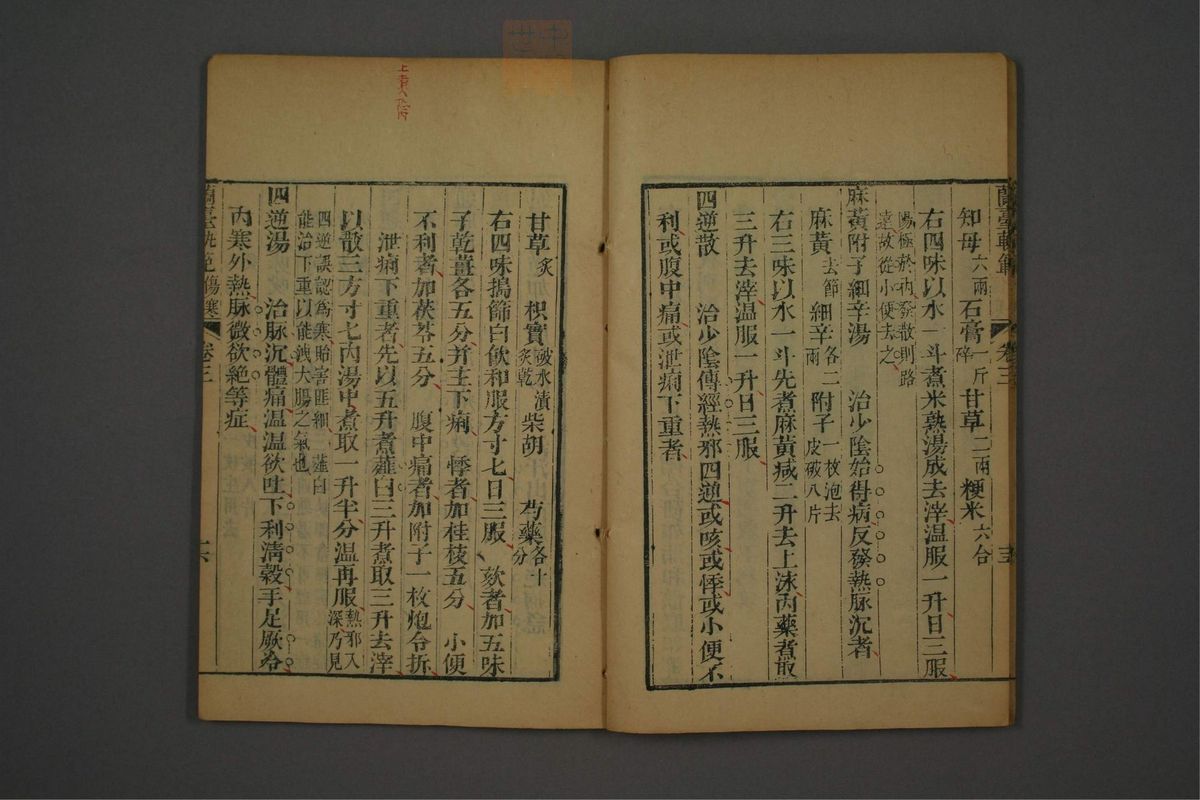 蘭臺軌範
卷三
知母六兩石膏一斤碎甘草二兩粳米六合
右四味以水一斗煮米熟湯成去滓温服一升日三服
陽極於内發散則路
遠故從小便去之
麻黃附子細辛湯　治少陰始得病反發熱脉沉者
麻黃去節細辛各二兩附子一枚泡去皮破八片
右三味以水一斗先煮麻黃减二升去上沫内藥煮取
三升去滓温服一升日三服
四逆散　治少陰傳經熱邪四逆或咳或悸或小便不
利或腹中痛或泄痢下重者
上煮人疹
甘草炙枳實破水漬炙乾柴胡　芍藥各十分
右四味搗篩白飲和服方寸匕日三服　欬者加五味
子乾薑各五分并主下痢　悸者加桂枝五分　小便
不利者加茯苓五分　腹中痛者加附子一枚炮令拆
泄痢下重者先以五升煮薤白三升煮取三升去滓
以散三方寸匕内湯中煮取一升半分温再服熱邪入深乃見
四逆誤認爲寒貽害匪細　薤白
能治下重以能洩大腸之氣也
四逆湯　治脉沉體痛温温欲吐下利清穀手足厥冷
内寒外熱脉微欲絶等症
蘭臺軌範傷寒
卷三